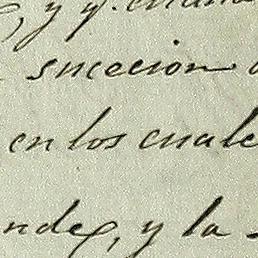 , y y.
sucecion
en los cuale
ndez, y la